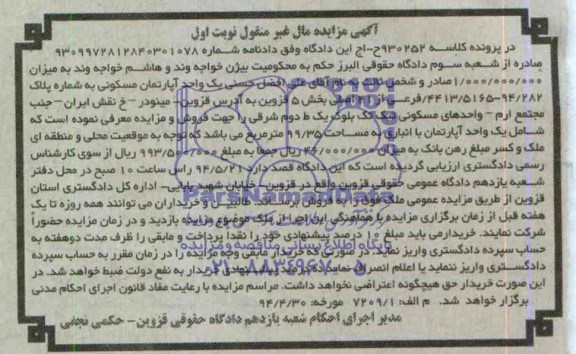 آگهی مزایده مال غیر منقول نوبت اول
در پرونده کلاسه 930252ح-اج این دادگاه وفق دادنامه شماره 9309972812840301078
صادره از شعبه سوم دادگاه حقوقی البرز حکم به محکومیت بیژن خواجه وند و هاشم خواجه وند به میزان
1/000/000/000 صادر و شخص ثالث بنام آقای علی افضل حسنی یک واحد آپارتمان مسکونی به شماره پلاک
4413/5165-94/282 فرعی از اصلی بخش 5 قزوین به آدرس قزوین - مینودر - خ نقش ایران - جنب
مجتمع ارم - واحدهای مسکونی بلوک یک ط دوم شرقی را جهت فروش و مزایده معرفی نموده است که
شامل یک واحد آپارتمان با انباری به مساحت 99/35 مترمربع می باشد که توجه به موقعیت محلی و منطقه ای
ملک و کسر مبلغ رهن بانک به میزان 46/000/000 ریال جمعاً به مبلغ 993/500/000 ریال از سوی کارشناس
رسمی دادگستری ارزیابی گردیده است که این دادگاه قصد دارد 94/5/21 راس ساعت 10 صبح در محل دفتر
شعبه یازدهم دادگاه عمومی حقوقی قزوین واقع در قزوین - خیابان شهید بابایی- اداره کل دادگستری استان
قزوین از طریق مزایده عمومی ملک فوق را به فروش برساند. طالبین و خریداران می توانند همه روزه تا یک
هفته قبل از زمان برگزاری مزایده با هماهنگی این اجرا از ملک موضوع مزایده بازدید و در زمان مزایده حضوراً
شرکت نمایند. خریدار می باید مبلغ 10 درصد پیشنهادی خود را نقدا پرداخت و مابقی را ظرف مدت دوهفته به
حساب سپرده دادگستری واریز نماید. در صورتی که خریدار مابقی وجه مزایده را در زمان مقرر به حساب سپرده
دادگستری واریز ننماید یا اعلام انصراف نماید ده درصد پیشنهادی خریدار به نفع دولت ضبط خواهد شد. در
این صورت خریدار حق هیچگونه اعتراضی نخواهد داشت. مراسم مزایده با رعایت مفاد قانون اجرای احکام مدنی
برگزار خواهد شد. م الف: 7209/1 مورخه: 94/4/30
مدیر اجرای احکام شعبه یازدهم دادگاه حقوقی قزوین- حکمی نجفی
پایگاه اطلاع رسانی مناقصه و مزایده